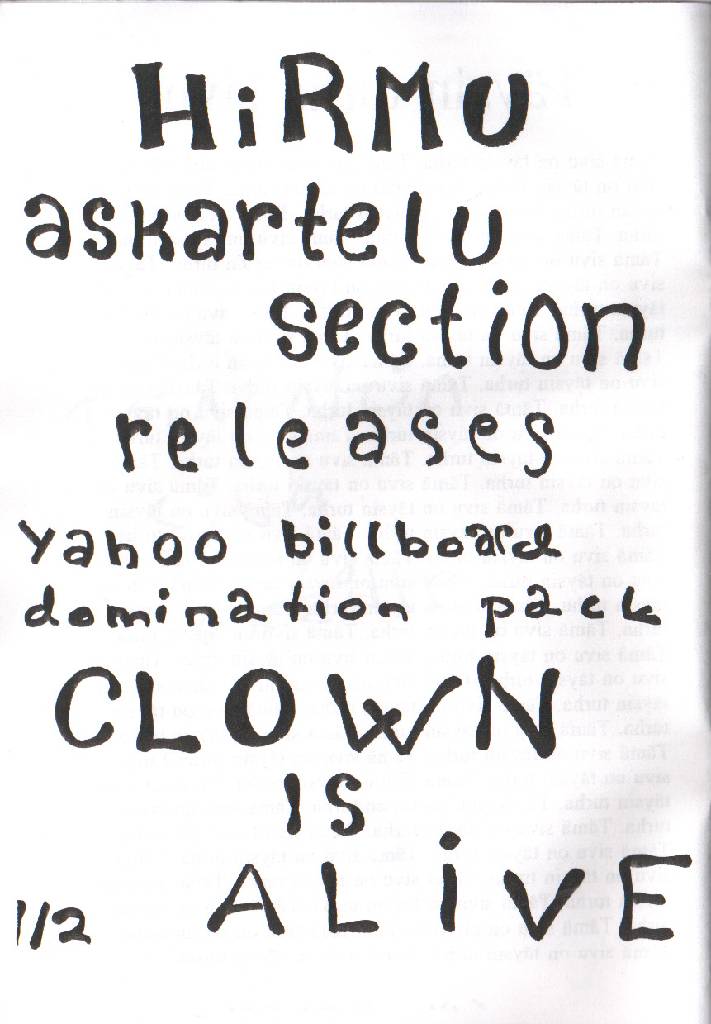 HiRMU
askartelu
section
releases
yahoo billboard
domination pack
CLOWN
IS
ALiVE
1/2